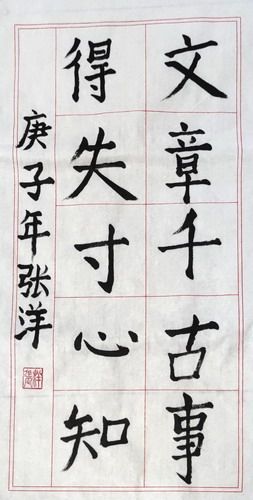 文章千古事
得失寸心知
庚子年张洋